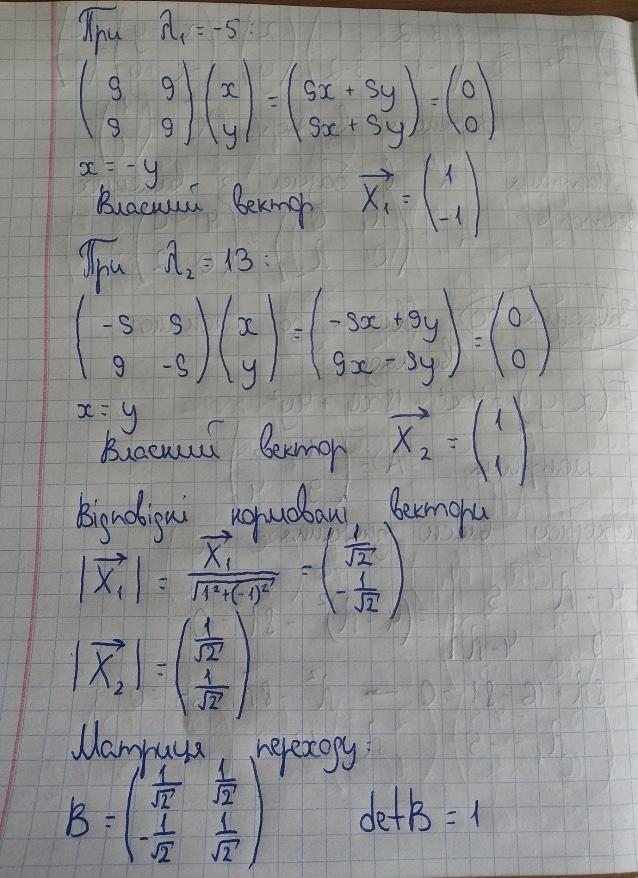 При λ₁ = -5:
(9 9; 9 9)(x; y) = (9x + 9y; 9x + 9y) = (0; 0)
x = -y
Власний вектор X₁ = (1; -1)
При λ₂ = 13:
(-9 9; 9 -9)(x; y) = (-9x + 9y; 9x - 9y) = (0; 0)
x = y
Власний вектор X₂ = (1; 1)
Відповідні нормовані вектори
|X₁| = X₁/√(1²+(-1)²) = (1/√2; -1/√2)
|X₂| = (1/√2; 1/√2)
Матриця переходу:
B = (1/√2 1/√2; -1/√2 1/√2) detB = 1